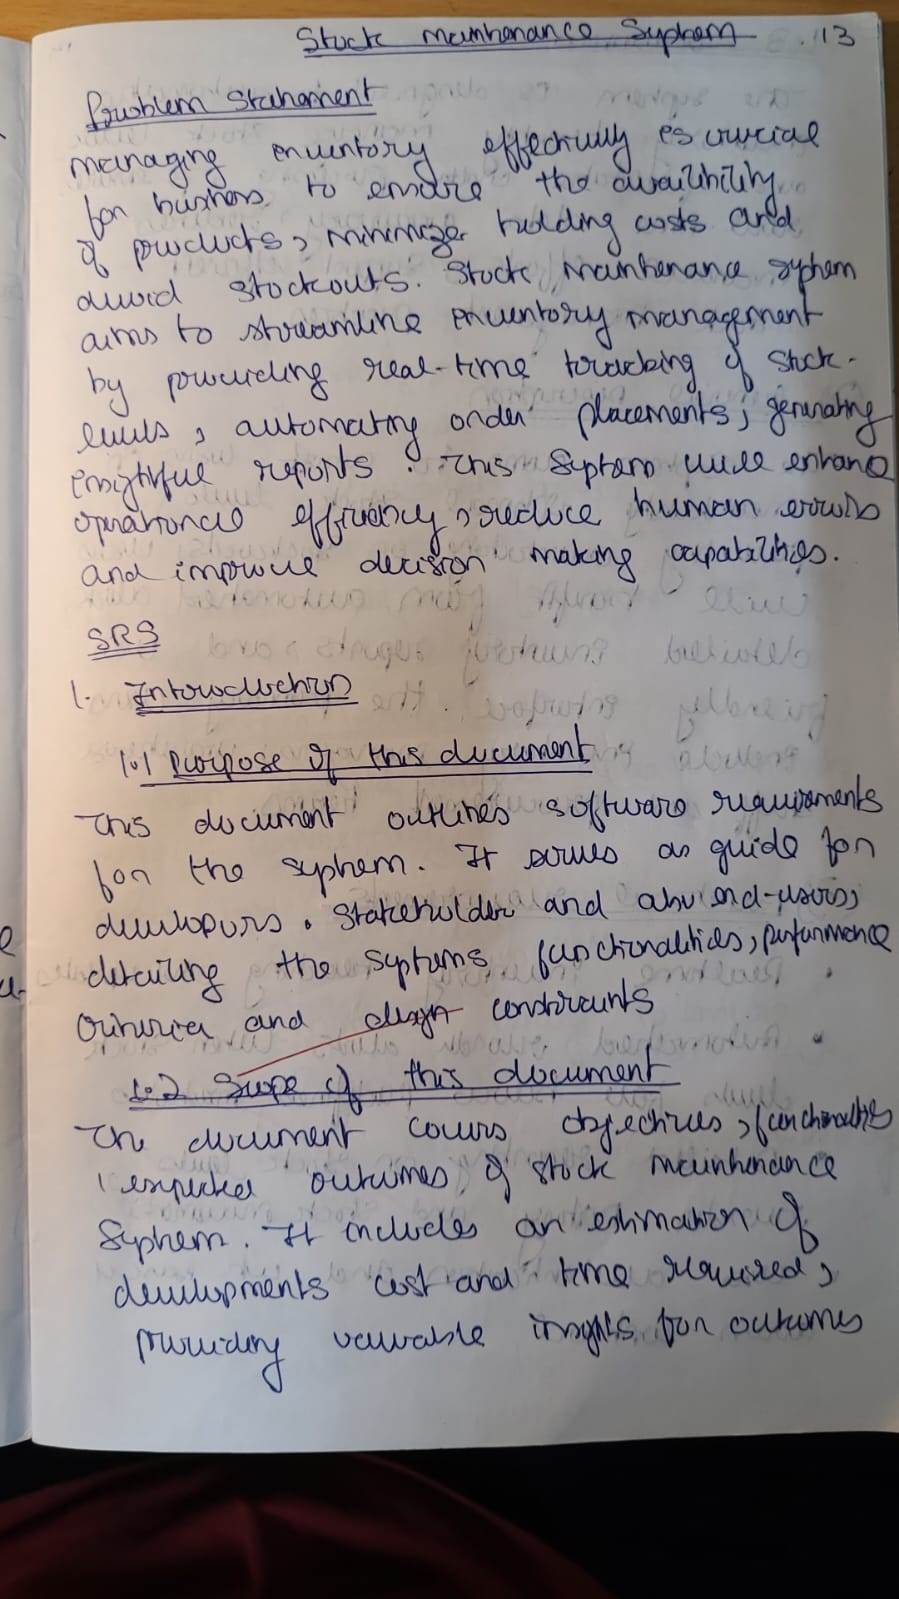 Stock maintenance System 13
Problem Statement
managing inventory effectively is crucial
for business to ensure the availibility
of products, minimize holding costs and
avoid stockouts. Stock maintenance system
aims to streamline inventory management
by providing real-time tracking of stock
levels, automating order placements, generating
insightful reports. This System will enhance
operational efficiency, reduce human errors
and improve decision making capabilities.
SRS
1. Introduction
1.1 Purpose of this document
This document outlines software requirements
for the system. It serves as guide for
developers. Stakeholder and also end-users,
detailing the systems functionalities, performance
criteria and design constraints
1.2 Scope of this document
The document covers objectives, functionalities
, expected outcomes of stock maintenance
System. It includes an estimation of
developments cost and time required,
providing valuable insights for outcomes